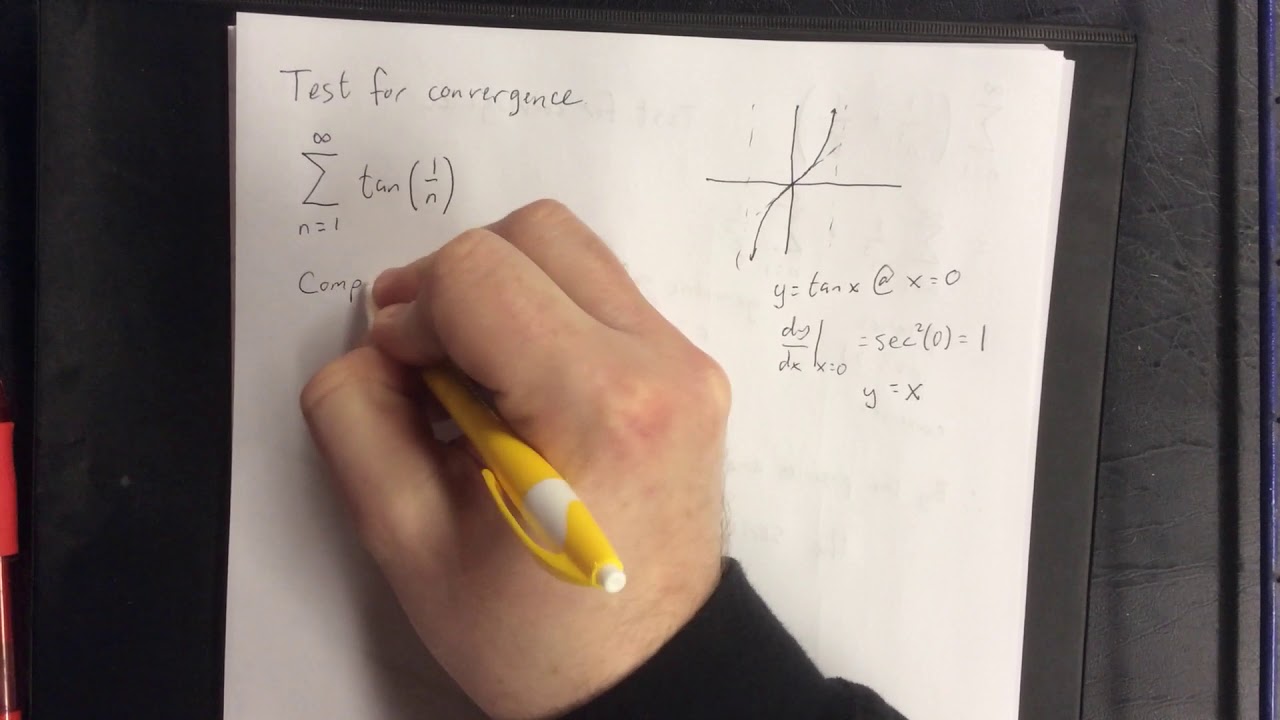 Test for convergence
∞
∑ tan(1/n)
n=1
Comp
y=tanx @ x=0
dy/dx|x=0 =sec²(0)=1
y=x